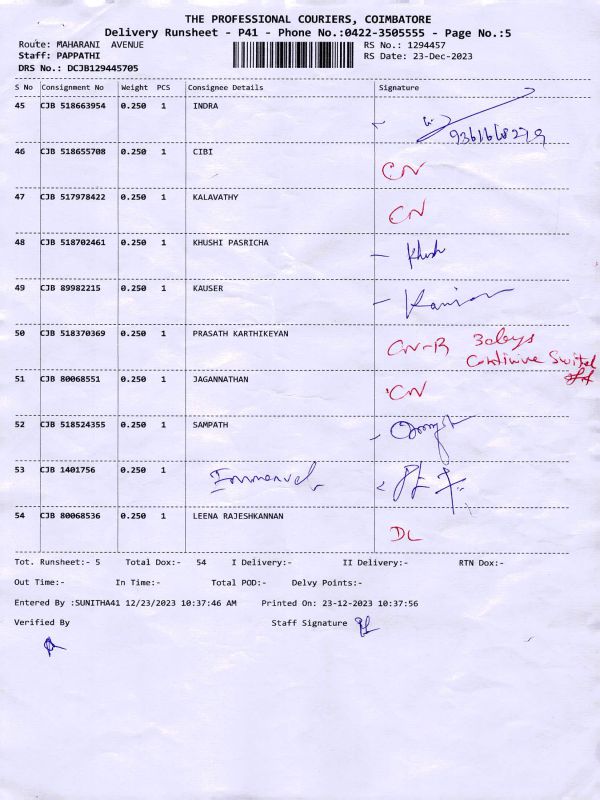 THE PROFESSIONAL COURIERS, COIMBATORE
Delivery Runsheet - P41 - Phone No.:0422-3505555 - Page No.:5
Route: MAHARANI AVENUE RS No.: 1294457
Staff: PAPPATHI RS Date: 23-Dec-2023
DRS No.: DCJB129445705
S No Consignment No Weight PCS Consignee Details Signature
45 CJB 518663954 0.250 1 INDRA
46 CJB 518655708 0.250 1 CIBI
CN
47 CJB 517978422 0.250 1 KALAVATHY
CN
48 CJB 518702461 0.250 1 KHUSHI PASRICHA
Khush
49 CJB 89982215 0.250 1 KAUSER
50 CJB 518370369 0.250 1 PRASATH KARTHIKEYAN
CN-R 3days
51 CJB 80068551 0.250 1 JAGANNATHAN
CN
52 CJB 518524355 0.250 1 SAMPATH
53 CJB 1401756 0.250 1 Immanuel
54 CJB 80068536 0.250 1 LEENA RAJESHKANNAN
DL
Tot. Runsheet:- 5 Total Dox:- 54 I Delivery:- II Delivery:- RTN Dox:-
Out Time:- In Time:- Total POD:- Delvy Points:-
Entered By :SUNITHA41 12/23/2023 10:37:46 AM Printed On: 23-12-2023 10:37:56
Verified By Staff Signature